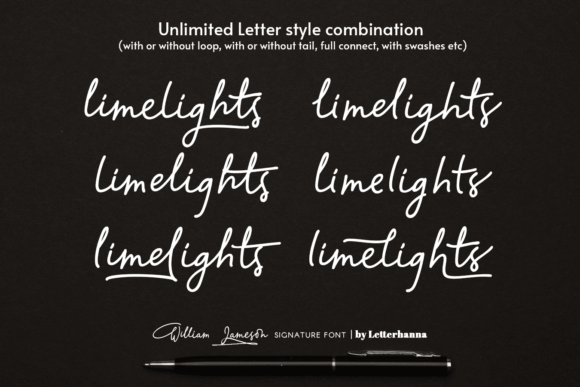 Unlimited Letter style combination
(with or without loop, with or without tail, full connect, with swashes etc)
limelights limelights
limelights limelights
limelights limelights
William Jameson SIGNATURE FONT | by Letterhanna